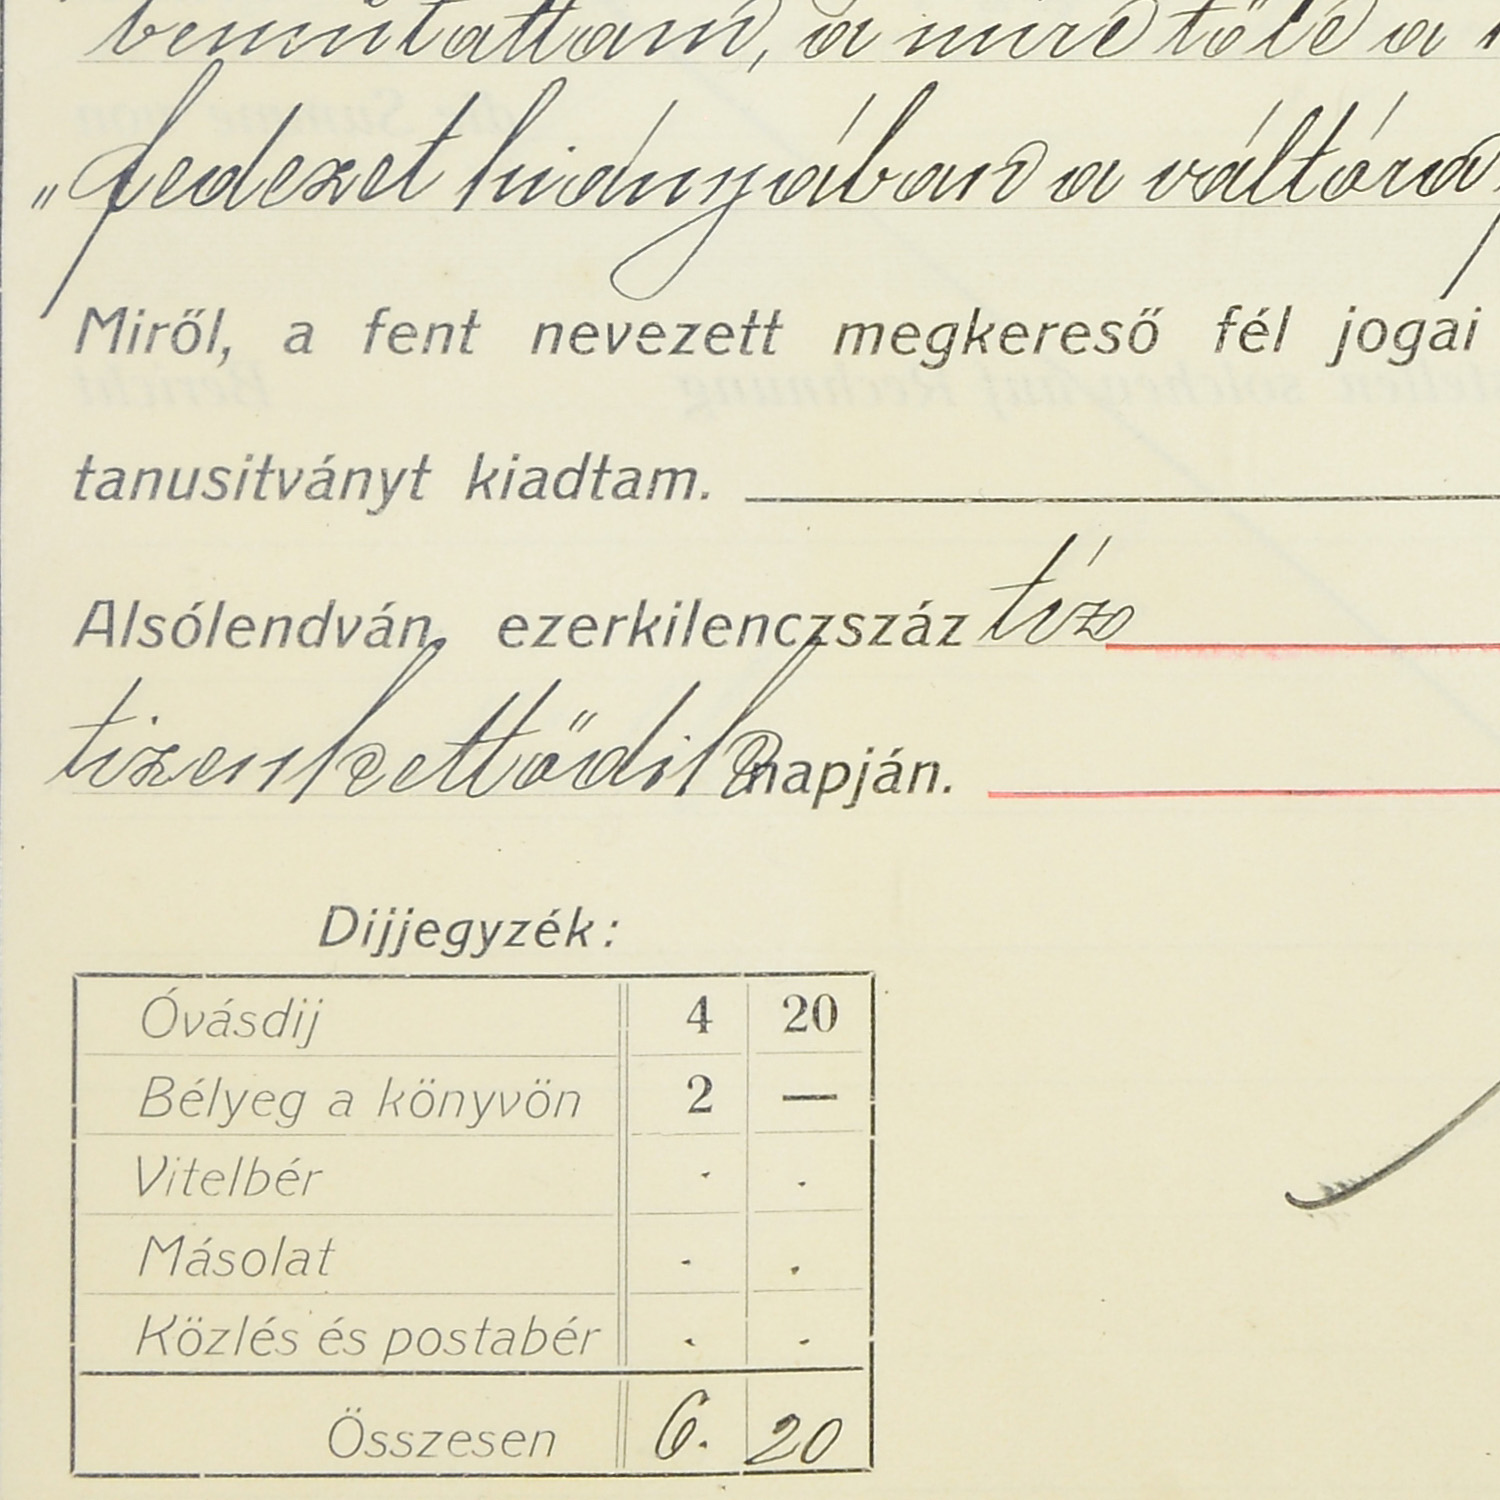 bemutattam, a mire tőle a
„fedezet hiányában a váltóra
Miről, a fent nevezett megkereső fél jogai
tanusitványt kiadtam.
Alsólendván, ezerkilenczszáz tíz
tizenkettödik napján.
Dijjegyzék:
Óvásdij 4 20
Bélyeg a könyvön 2 —
Vitelbér . .
Másolat . .
Közlés és postabér . .
Összesen 6. 20